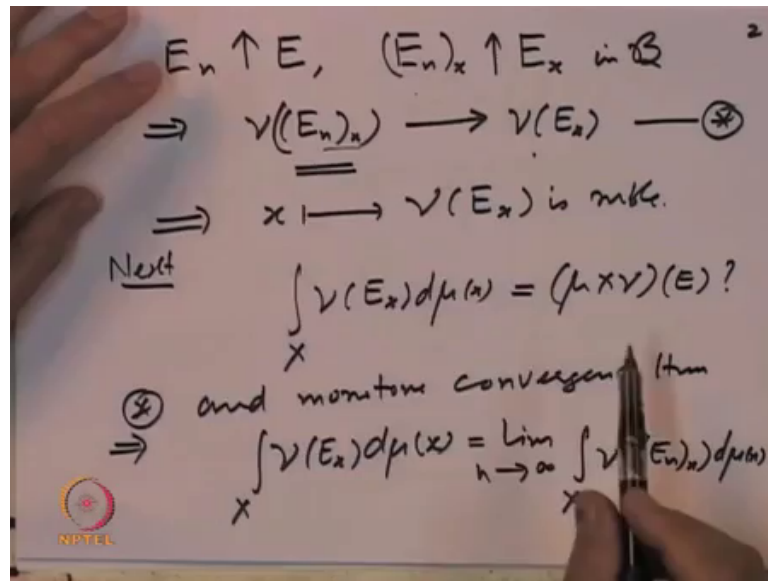 2
Eₙ ↑ E, (Eₙ)ₓ ↑ Eₓ in 𝓑
⇒ ν((Eₙ)ₓ) ⟶ ν(Eₓ) — ⊛
⇒ x ⟼ ν(Eₓ) is mble.
Next
∫_X ν(Eₓ) dμ(x) = (μ×ν)(E) ?
⊛ and monotone convergen thm
⇒ ∫_X ν(Eₓ) dμ(x) = Lim_{n→∞} ∫_X ν (Eₙ)ₓ) dμ(x)
NPTEL